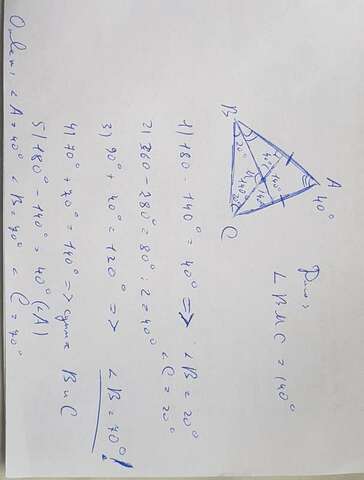 Дано:
∠ BMC = 140°
A
40°
B
20°
140°
C
1) 180 - 140° = 40° => ∠B = 20°
∠C = 20°
2) 360 - 280° = 80° : 2 = 40°
3) 90° + 40° = 120° => ∠B = 70°!
4) 70° + 70° = 140° => сумма B и C
5) 180° - 140° = 40° (∠A)
Ответ: ∠A = 40° ∠B = 70° ∠C = 70°